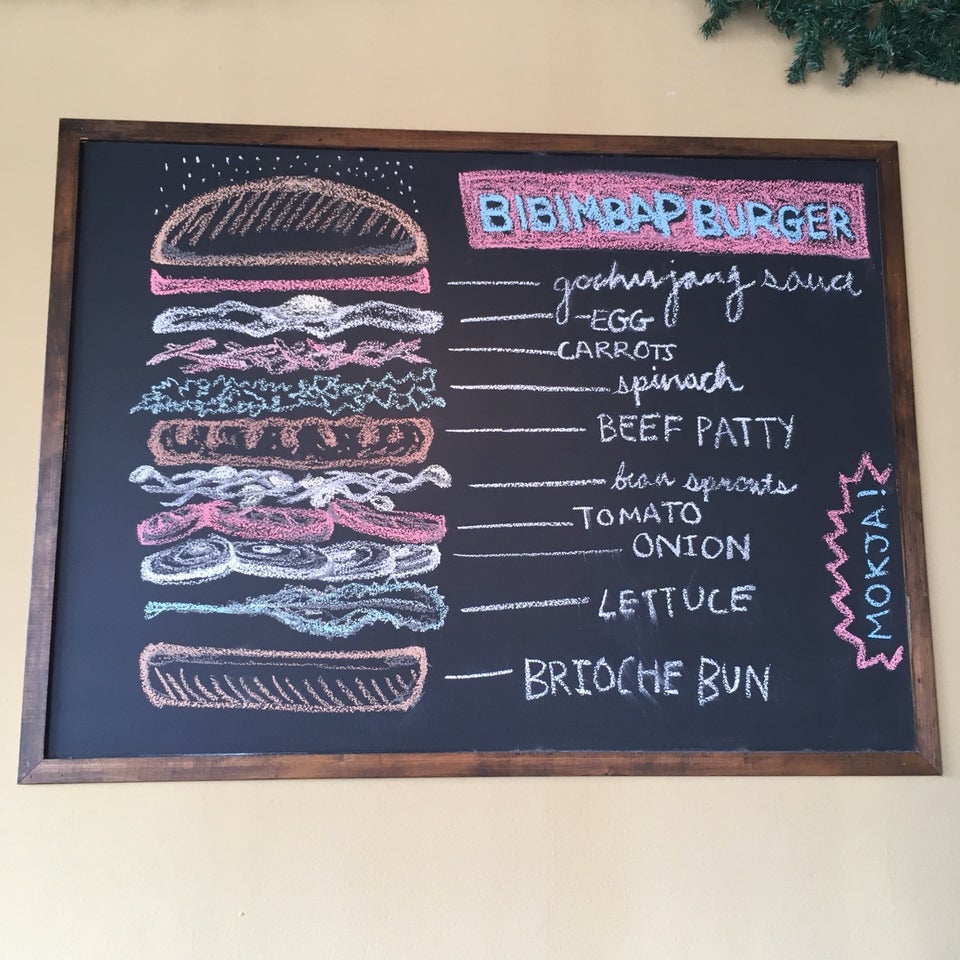 BIBIMBAP BURGER
gochujang sauce
-EGG
CARROTS
spinach
BEEF PATTY
bean sprouts
TOMATO
ONION
LETTUCE
BRIOCHE BUN
MOKJA!